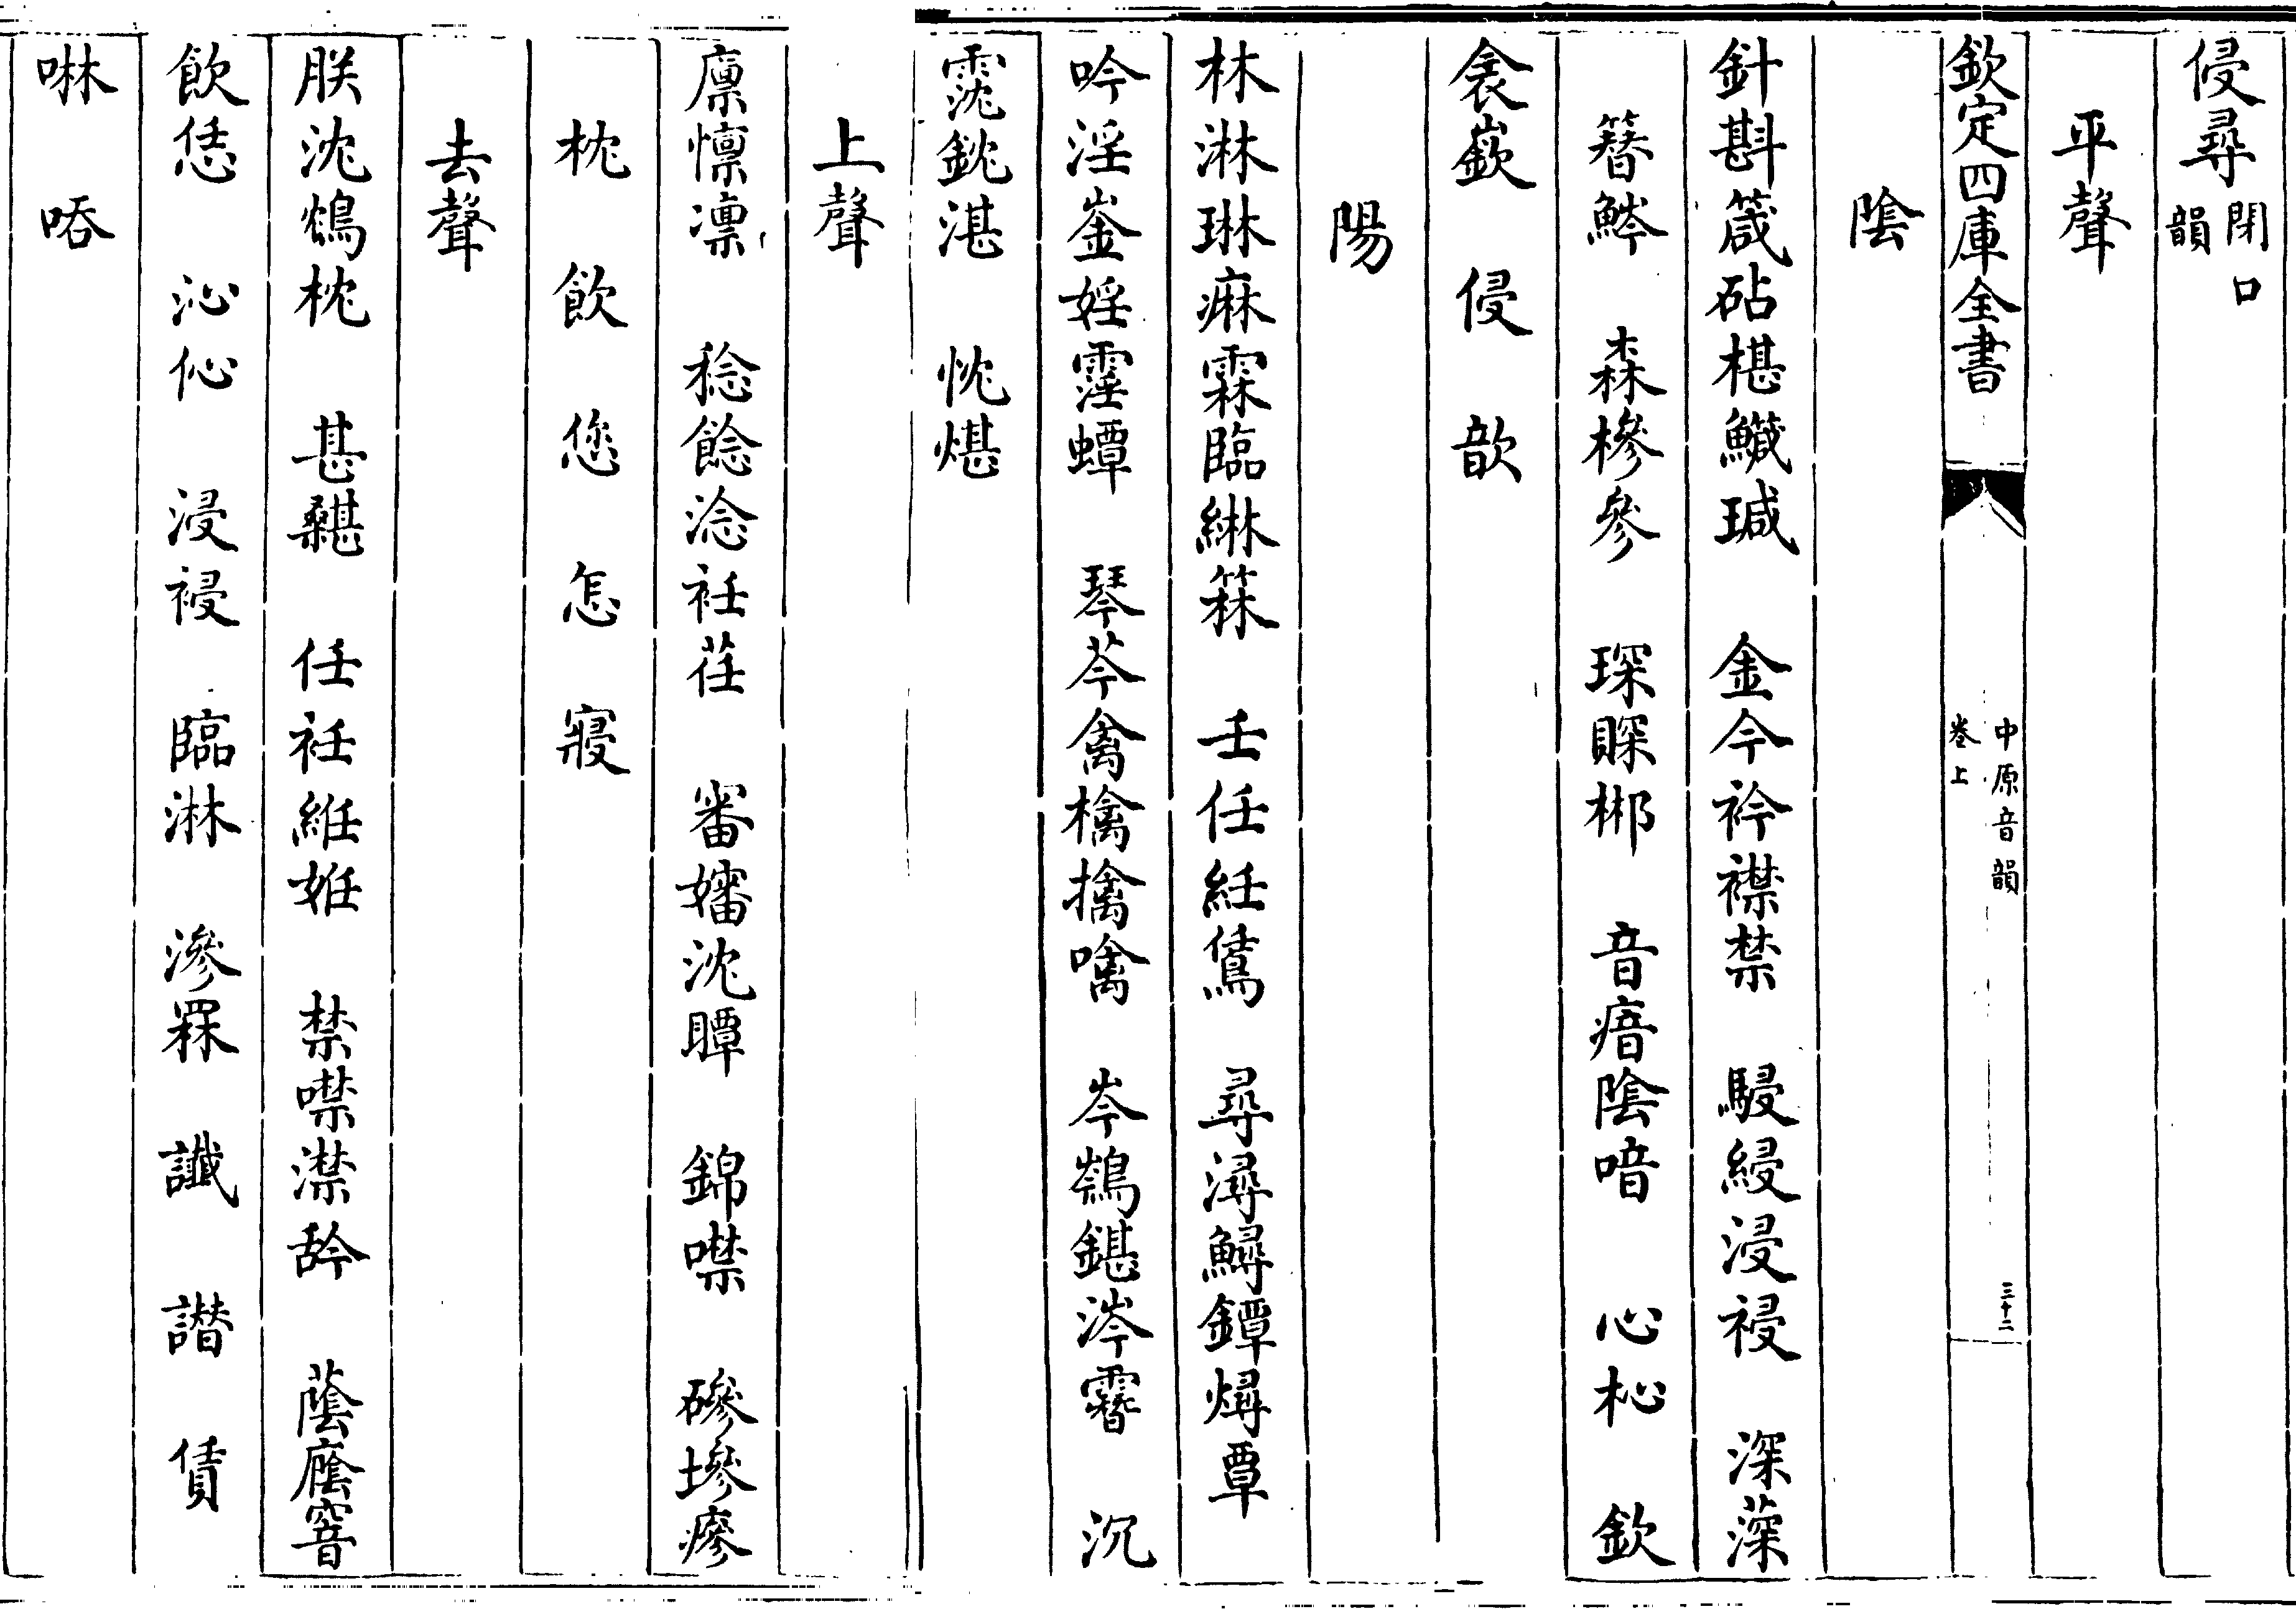 侵尋閉口韻
平聲
欽定四庫全書 中原音韻 卷上 三十二
陰
針斟箴砧椹鱵瑊 金今衿襟禁 駸綅浸祲 深蔆
簪 森槮參 琛賝郴 音瘖陰喑 心杺 欽
衾嶔 侵 歆
陽
林淋琳痳霖臨綝箖 壬任紝鵀 尋潯鱘鐔燖覃
吟淫崟婬霪蟫 琴芩禽檎擒噙 岑鍖涔 沉
霃鈂湛 忱煁
上聲
廩懍凛 稔餁淰衽荏 審嬸沈瞫 錦噤 磣墋瘮
枕 飲 您 怎 寢
去聲
朕沈鴆枕 甚 任衽絍妊 禁噤澿 蔭廕窨
飲恁 沁伈 浸祲 臨淋 滲罧 讖 譛 賃
啉 唔